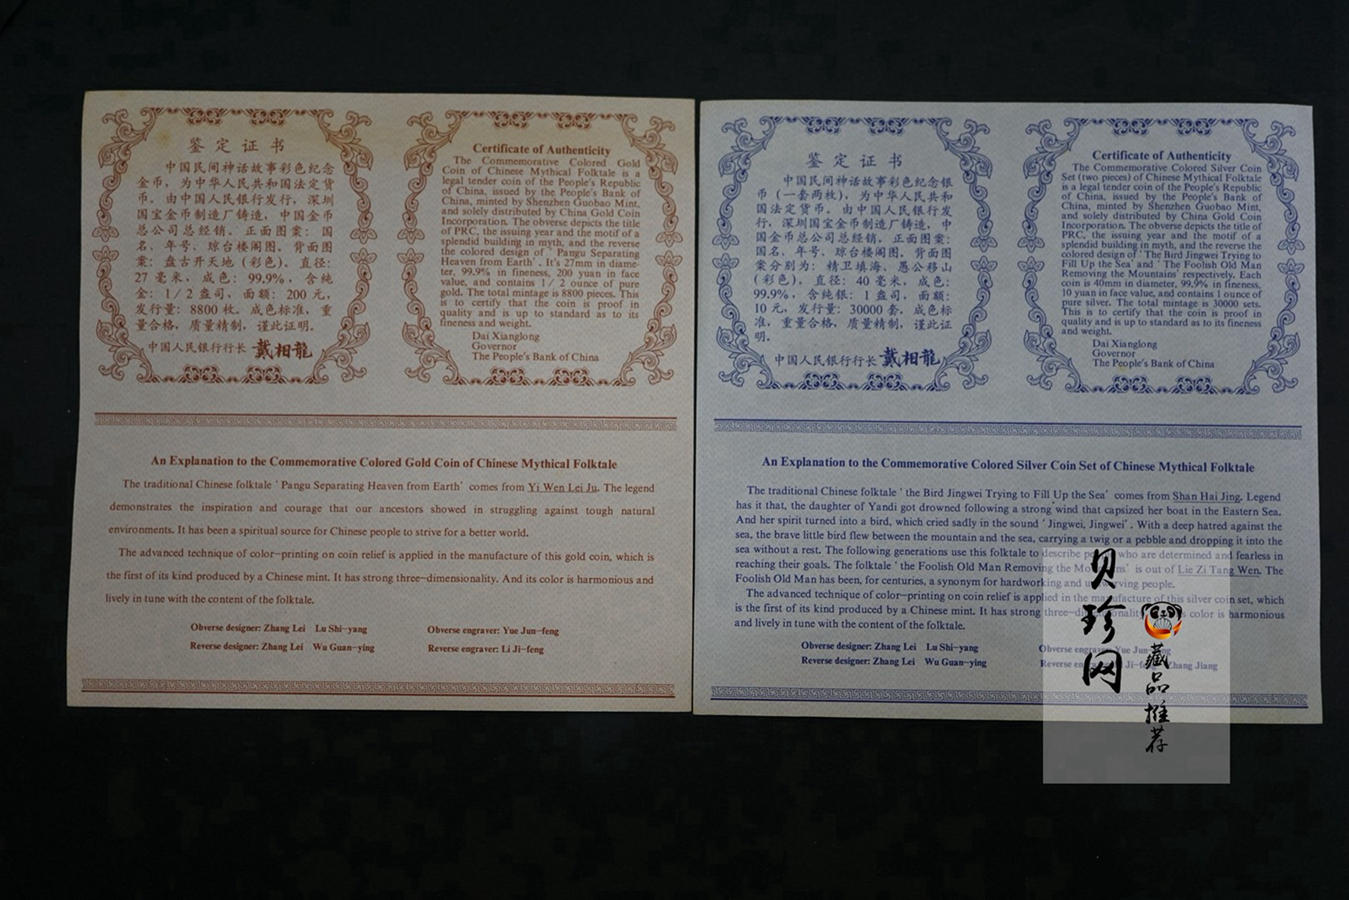 鉴定证书
中国民间神话故事彩色纪念
金币，为中华人民共和国法定货
币。由中国人民银行发行，深圳
国宝金币制造厂铸造，中国金币
总公司总经销。正面图案：国
名、年号、琼台楼阁图。背面图
案：盘古开天地（彩色）。直径：
27毫米，成色：99.9%，含纯
金：1/2盎司，面额：200元，
发行量：8800枚。成色标准，重
量合格，质量精制，谨此证明。
中国人民银行行长 戴相龍
Certificate of Authenticity
The Commemorative Colored Gold
Coin of Chinese Mythical Folktale is a
legal tender coin of the People's Republic
of China, issued by the People's Bank of
China, minted by Shenzhen Guobao Mint,
and solely distributed by China Gold Coin
Incorporation. The obverse depicts the title
of PRC, the issuing year and the motif of a
splendid building in myth, and the reverse
the colored design of ' Pangu Separating
Heaven from Earth'. It's 27mm in diame-
ter, 99.9% in fineness, 200 yuan in face
value, and contains 1/2 ounce of pure
gold. The total mintage is 8800 pieces. This
is to certify that the coin is proof in
quality and is up to standard as to its
fineness and weight.
Dai Xianglong
Governor
The People's Bank of China
An Explanation to the Commemorative Colored Gold Coin of Chinese Mythical Folktale
The traditional Chinese folktale ' Pangu Separating Heaven from Earth' comes from Yi Wen Lei Ju. The legend
demonstrates the inspiration and courage that our ancestors showed in struggling against tough natural
environments. It has been a spiritual source for Chinese people to strive for a better world.
The advanced technique of color-printing on coin relief is applied in the manufacture of this gold coin, which is
the first of its kind produced by a Chinese mint. It has strong three-dimensionality. And its color is harmonious and
lively in tune with the content of the folktale.
Obverse designer: Zhang Lei Lu Shi-yang Obverse engraver: Yue Jun-feng
Reverse designer: Zhang Lei Wu Guan-ying Reverse engraver: Li Ji-feng
鉴定证书
中国民间神话故事彩色纪念银
币（一套两枚），为中华人民共和
国法定货币。由中国人民银行发
行，深圳国宝金币制造厂铸造，中
国金币总公司总经销。正面图案：
国名、年号、琼台楼阁图。背面图
案分别为：精卫填海、愚公移山
（彩色），直径：40毫米，成色：
99.9%，含纯银：1盎司，面额：
10元，发行量：30000套。成色标
准，重量合格，质量精制，谨此证
明。
中国人民银行行长 戴相龍
Certificate of Authenticity
The Commemorative Colored Silver Coin
Set (two pieces) of Chinese Mythical Folktale
is a legal tender coin of the People's Republic
of China, issued by the People's Bank of
China, minted by Shenzhen Guobao Mint,
and solely distributed by China Gold Coin
Incorporation. The obverse depicts the title
of PRC, the issuing year and the motif of a
splendid building in myth, and the reverse the
colored design of ' The Bird Jingwei Trying to
Fill Up the Sea' and ' The Foolish Old Man
Removing the Mountains' respectively. Each
coin is 40mm in diameter, 99.9% in fineness,
10 yuan in face value, and contains 1 ounce of
pure silver. The total mintage is 30000 sets.
This is to certify that the coin is proof in
quality and is up to standard as to its fineness
and weight.
Dai Xianglong
Governor
The People's Bank of China
An Explanation to the Commemorative Colored Silver Coin Set of Chinese Mythical Folktale
The traditional Chinese folktale ' the Bird Jingwei Trying to Fill Up the Sea' comes from Shan Hai Jing. Legend
has it that, the daughter of Yandi got drowned following a strong wind that capsized her boat in the Eastern Sea.
And her spirit turned into a bird, which cried sadly in the sound ' Jingwei, Jingwei'. With a deep hatred against the
sea, the brave little bird flew between the mountain and the sea, carrying a twig or a pebble and dropping it into the
sea without a rest. The following generations use this folktale to describe who are determined and fearless in
reaching their goals. The folktale ' the Foolish Old Man Removing the is out of Lie Zi Tang Wen. The
Foolish Old Man has been, for centuries, a synonym for hardworking and people.
The advanced technique of color-printing on coin relief is applied in the manufacture of this silver coin set, which
is the first of its kind produced by a Chinese mint. It has strong color is harmonious
and lively in tune with the content of the folktale.
Obverse designer: Zhang Lei Lu Shi-yang Obverse engraver: Yue
Reverse designer: Zhang Lei Wu Guan-ying Reverse Zhang Jiang
贝珍网
藏品推荐